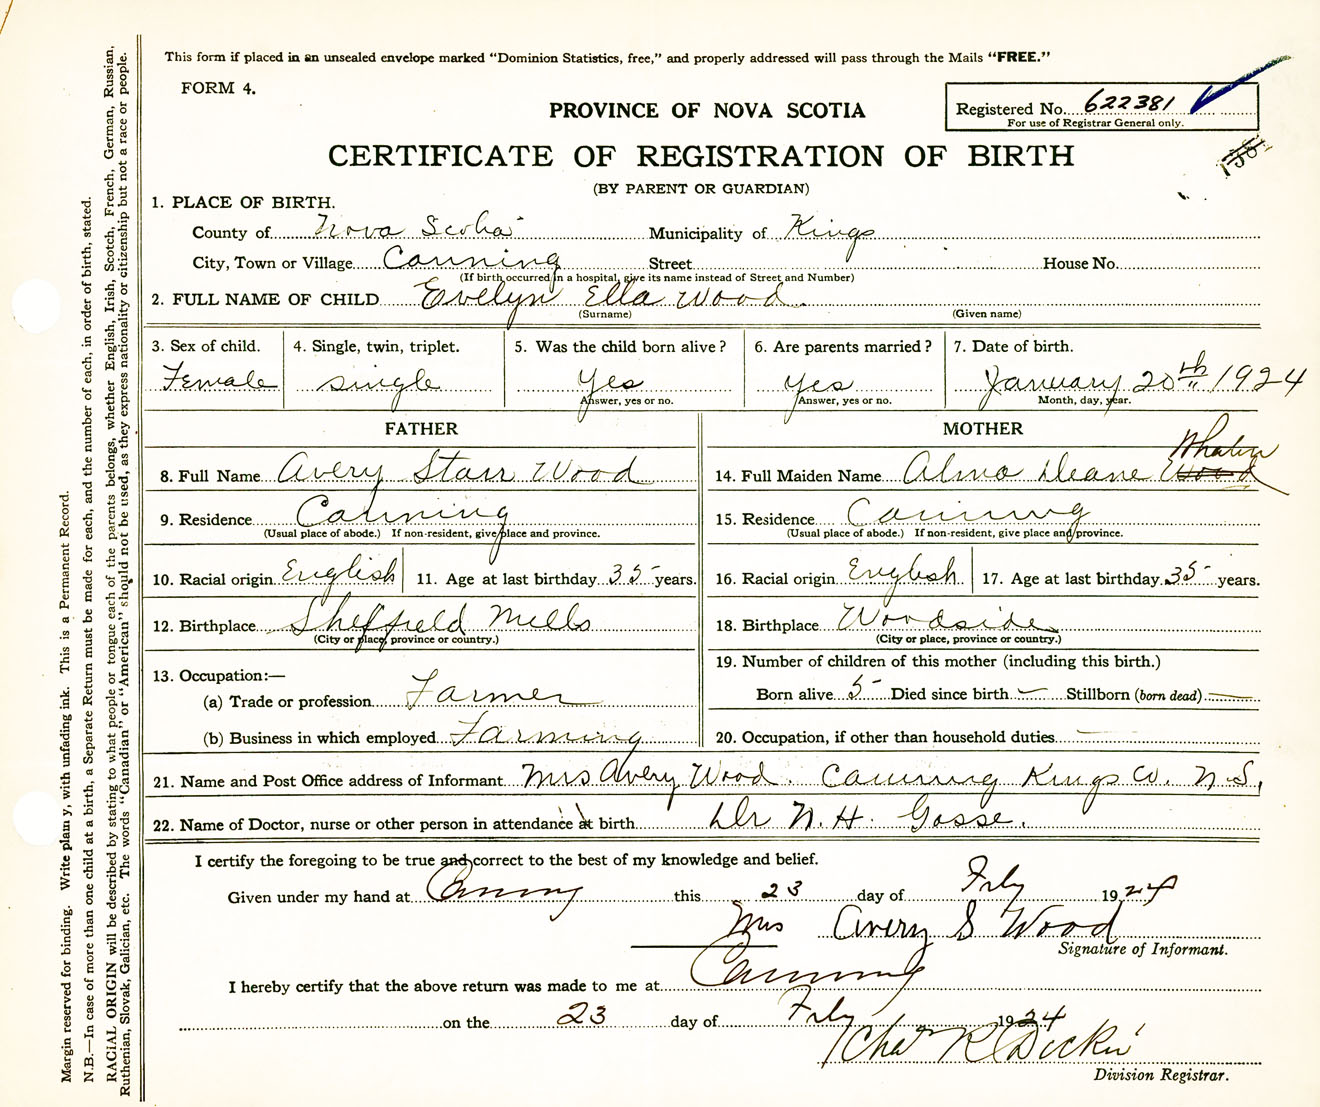 This form if placed in an unsealed envelope marked "Dominion Statistics, free," and properly addressed will pass through the Mails "FREE."
FORM 4.
PROVINCE OF NOVA SCOTIA
Registered No. 622381
For use of Registrar General only.
CERTIFICATE OF REGISTRATION OF BIRTH
(BY PARENT OR GUARDIAN)
1. PLACE OF BIRTH.
County of Nova Scotia Municipality of Kings
City, Town or Village Canning Street House No.
(If birth occurred in a hospital, give its name instead of Street and Number)
2. FULL NAME OF CHILD Evelyn Ella Wood.
(Surname) (Given name)
3. Sex of child. 4. Single, twin, triplet. 5. Was the child born alive? 6. Are parents married? 7. Date of birth.
Female single Yes Yes January 20th 1924
Answer, yes or no. Answer, yes or no. Month, day, year.
FATHER MOTHER
Whalen
8. Full Name Avery Starr Wood 14. Full Maiden Name Alma Deane Wood
9. Residence Canning 15. Residence Canning
(Usual place of abode.) If non-resident, give place and province. (Usual place of abode.) If non-resident, give place and province.
10. Racial origin English 11. Age at last birthday 35 years. 16. Racial origin English 17. Age at last birthday 35 years.
12. Birthplace Sheffield Mills 18. Birthplace Woodside
(City or place, province or country.) (City or place, province or country.)
13. Occupation:— 19. Number of children of this mother (including this birth.)
(a) Trade or profession Farmer Born alive 5 Died since birth — Stillborn (born dead) —
(b) Business in which employed Farming 20. Occupation, if other than household duties —
21. Name and Post Office address of Informant Mrs Avery Wood. Canning Kings Co. N.S.
22. Name of Doctor, nurse or other person in attendance at birth Dr N. H. Gosse.
I certify the foregoing to be true and correct to the best of my knowledge and belief.
Given under my hand at Canning this 23 day of Feby 1924
Mrs Avery S Wood
Signature of Informant.
I hereby certify that the above return was made to me at Canning
on the 23 day of Feby 1924
Division Registrar.
Margin reserved for binding. Write plainly, with unfading ink. This is a Permanent Record.
N.B.—In case of more than one child at a birth, a Separate Return must be made for each, and the number of each, in order of birth, stated.
RACIAL ORIGIN will be described by stating to what people or tongue each of the parents belongs, whether English, Irish, Scotch, French, German, Russian,
Ruthenian, Slovak, Galician, etc. The words "Canadian" or "American" should not be used, as they express nationality or citizenship but not a race or people.